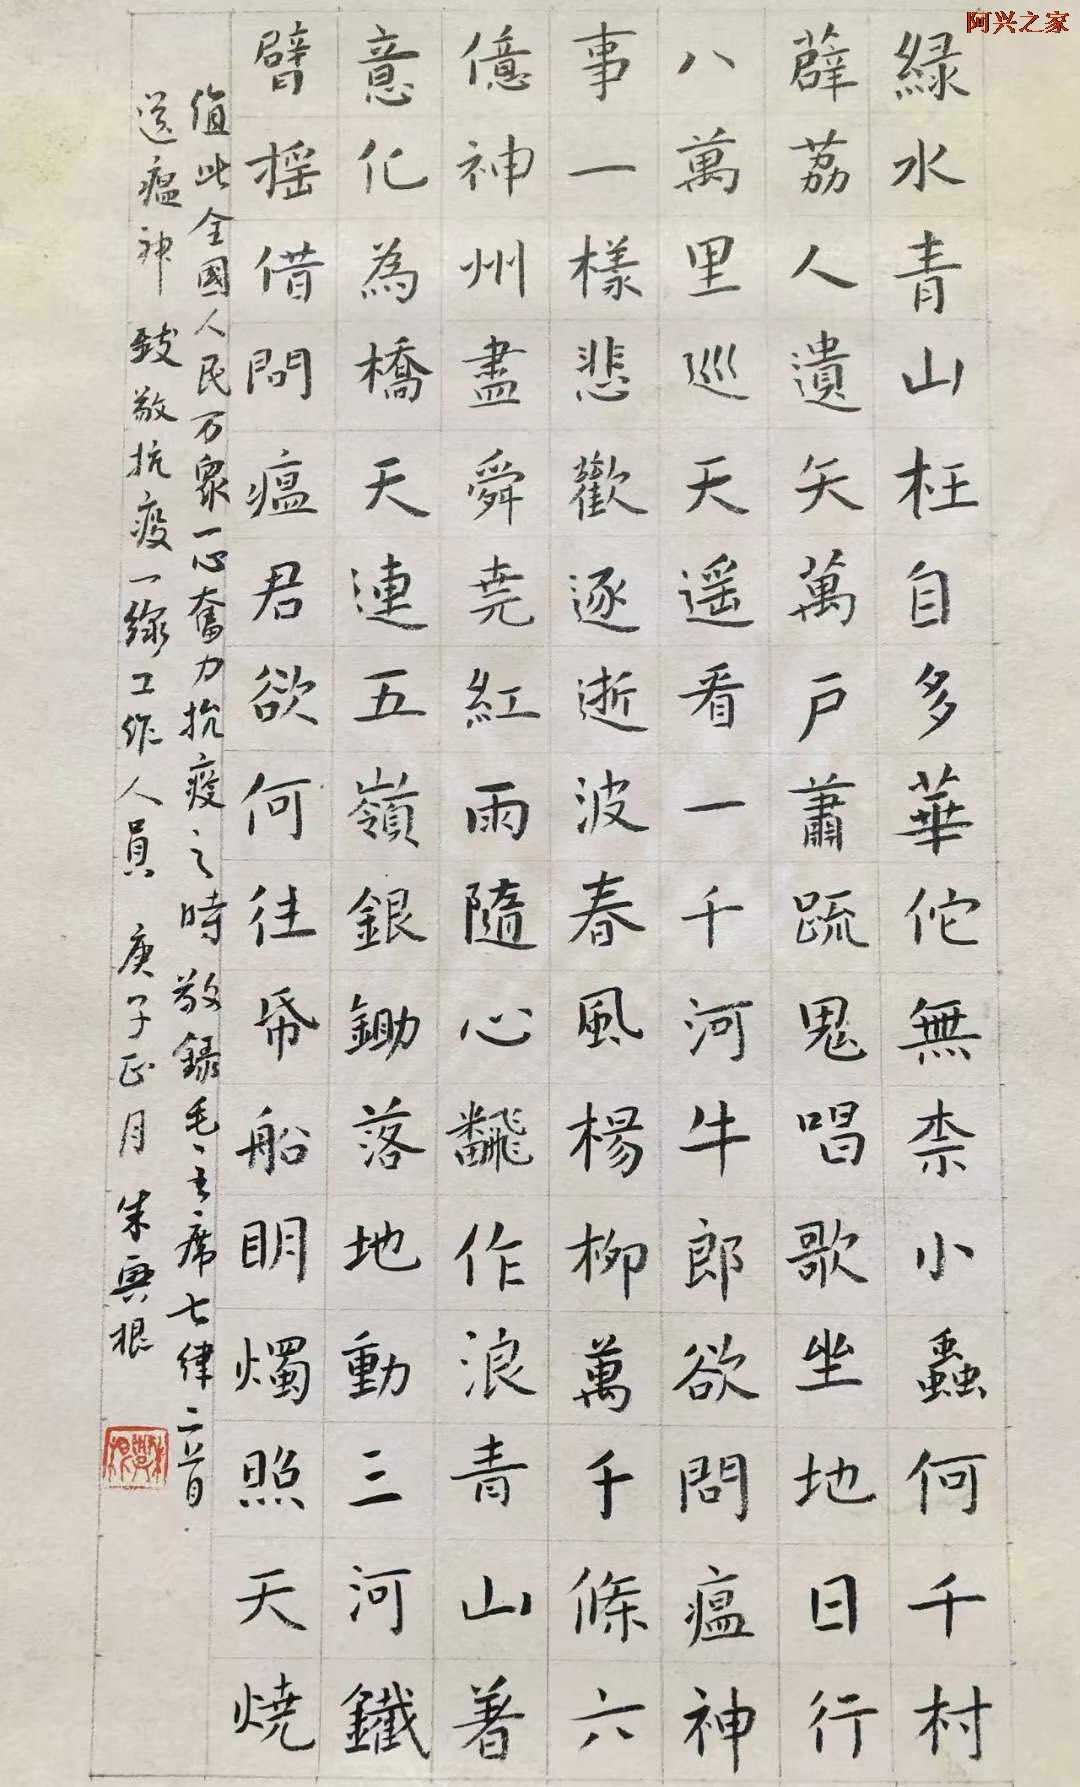 阿兴之家
緑水青山枉自多華佗無柰小蟲何千村
薜荔人遺矢萬戸蕭疏鬼唱歌坐地日行
八萬里巡天遥看一千河牛郎欲問瘟神
事一樣悲歡逐逝波春風楊柳萬千條六
億神州盡舜尭紅雨隨心飜作浪青山着
意化為橋天連五嶺銀鋤落地動三河鐵
臂摇借問瘟君欲何往帋船明燭照天燒
值此全國人民万眾一心奮力抗疫之時 敬録毛主席七律二首
送瘟神 致敬抗疫一線工作人員 庚子正月 朱興根